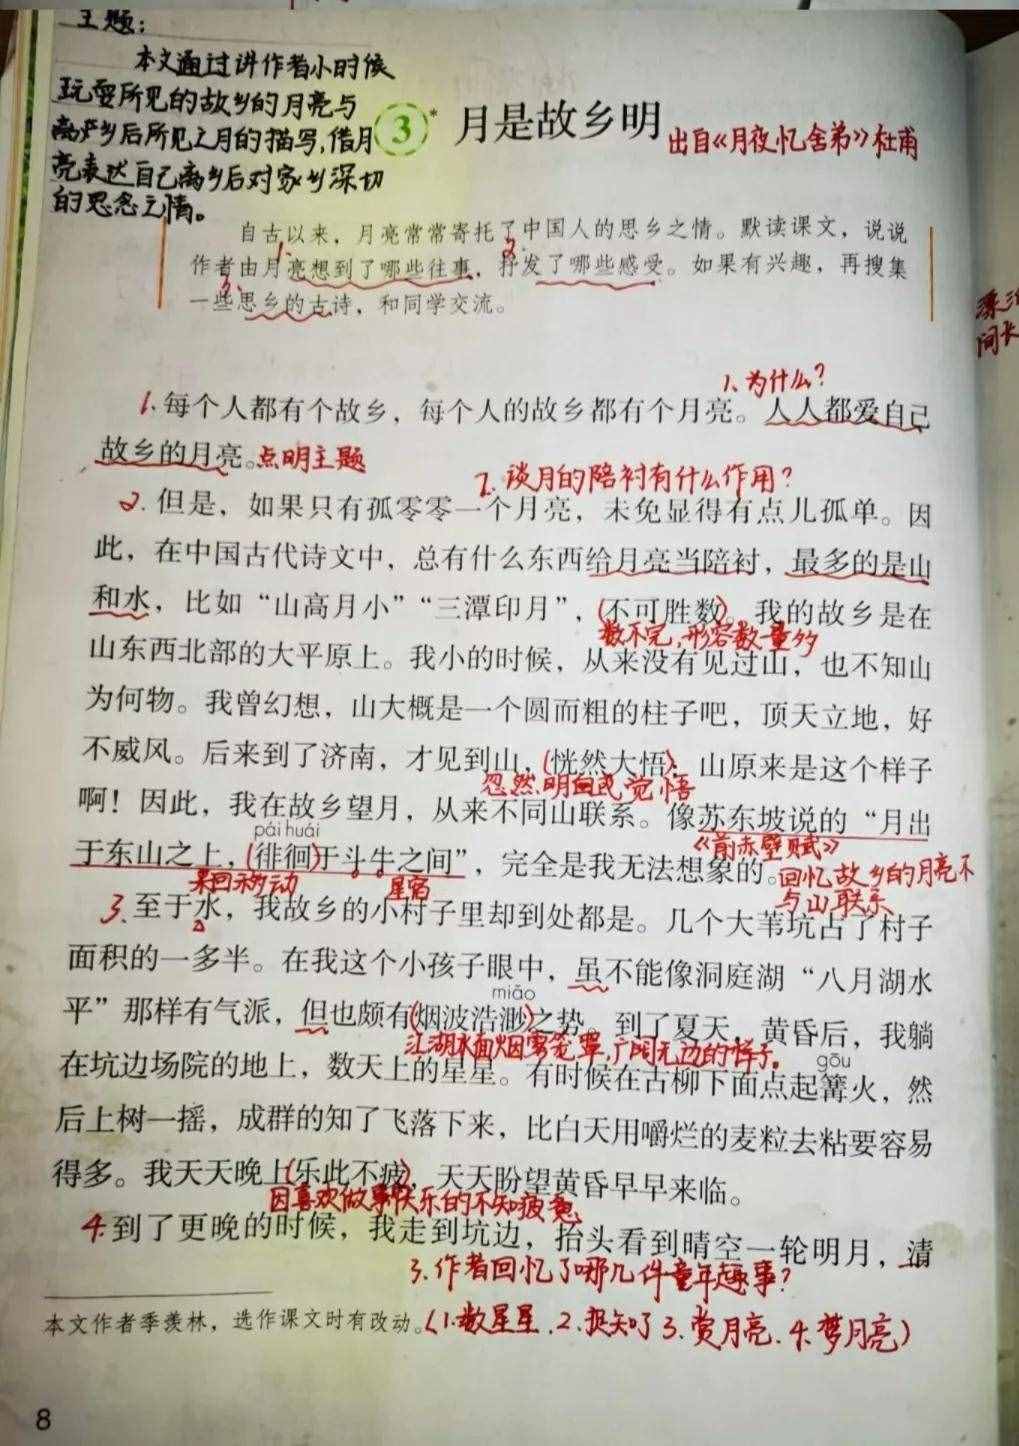 主题：
本文通过讲作者小时候
玩耍所见的故乡的月亮与
离乡后所见之月的描写,借月
亮表达自己离乡后对家乡深切
的思念之情。
3*
月是故乡明
出自《月夜忆舍弟》杜甫
自古以来，月亮常常寄托了中国人的思乡之情。默读课文，说说
1. 2.
作者由月亮想到了哪些往事，抒发了哪些感受。如果有兴趣，再搜集
3.
一些思乡的古诗，和同学交流。
间长
1.为什么?
1.每个人都有个故乡，每个人的故乡都有个月亮。人人都爱自己
故乡的月亮。点明主题
2.谈月的陪衬有什么作用?
2.但是，如果只有孤零零一个月亮，未免显得有点儿孤单。因
此，在中国古代诗文中，总有什么东西给月亮当陪衬，最多的是山
和水，比如“山高月小”“三潭印月”，(不可胜数)。我的故乡是在
数不完,形容数量多
山东西北部的大平原上。我小的时候，从来没有见过山，也不知山
为何物。我曾幻想，山大概是一个圆而粗的柱子吧，顶天立地，好
不威风。后来到了济南，才见到山，(恍然大悟)：山原来是这个样子
忽然明白或觉悟
啊！因此，我在故乡望月，从来不同山联系。像苏东坡说的“月出
pái huái
《前赤壁赋》
于东山之上，(徘徊)于斗牛之间”，完全是我无法想象的。回忆故乡的月亮不
来回移动 星宿 与山联系
3.至于水，我故乡的小村子里却到处都是。几个大苇坑占了村子
面积的一多半。在我这个小孩子眼中，虽不能像洞庭湖“八月湖水
miǎo
平”那样有气派，但也颇有(烟波浩渺)之势。到了夏天，黄昏后，我躺
江湖水面烟雾笼罩,广阔无边的样子。
在坑边场院的地上，数天上的星星。有时候在古柳下面点起篝火，然
gōu
后上树一摇，成群的知了飞落下来，比白天用嚼烂的麦粒去粘要容易
得多。我天天晚上(乐此不疲)，天天盼望黄昏早早来临。
因喜欢做事快乐的不知疲惫
4.到了更晚的时候，我走到坑边，抬头看到晴空一轮明月，清
3.作者回忆了哪几件童年趣事?
本文作者季羡林，选作课文时有改动。(1.数星星.2.捉知了3.赏月亮.4.梦月亮)
8